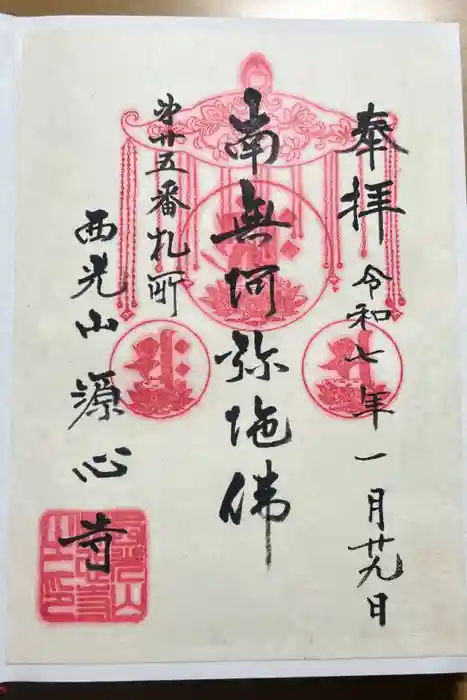 奉拝
令和七年一月廿九日
南無阿弥陀佛
第廿五番札所
西光山
源心寺